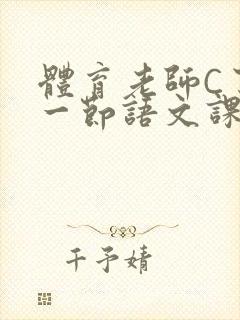 體育老師C
一節語文課
千予婧